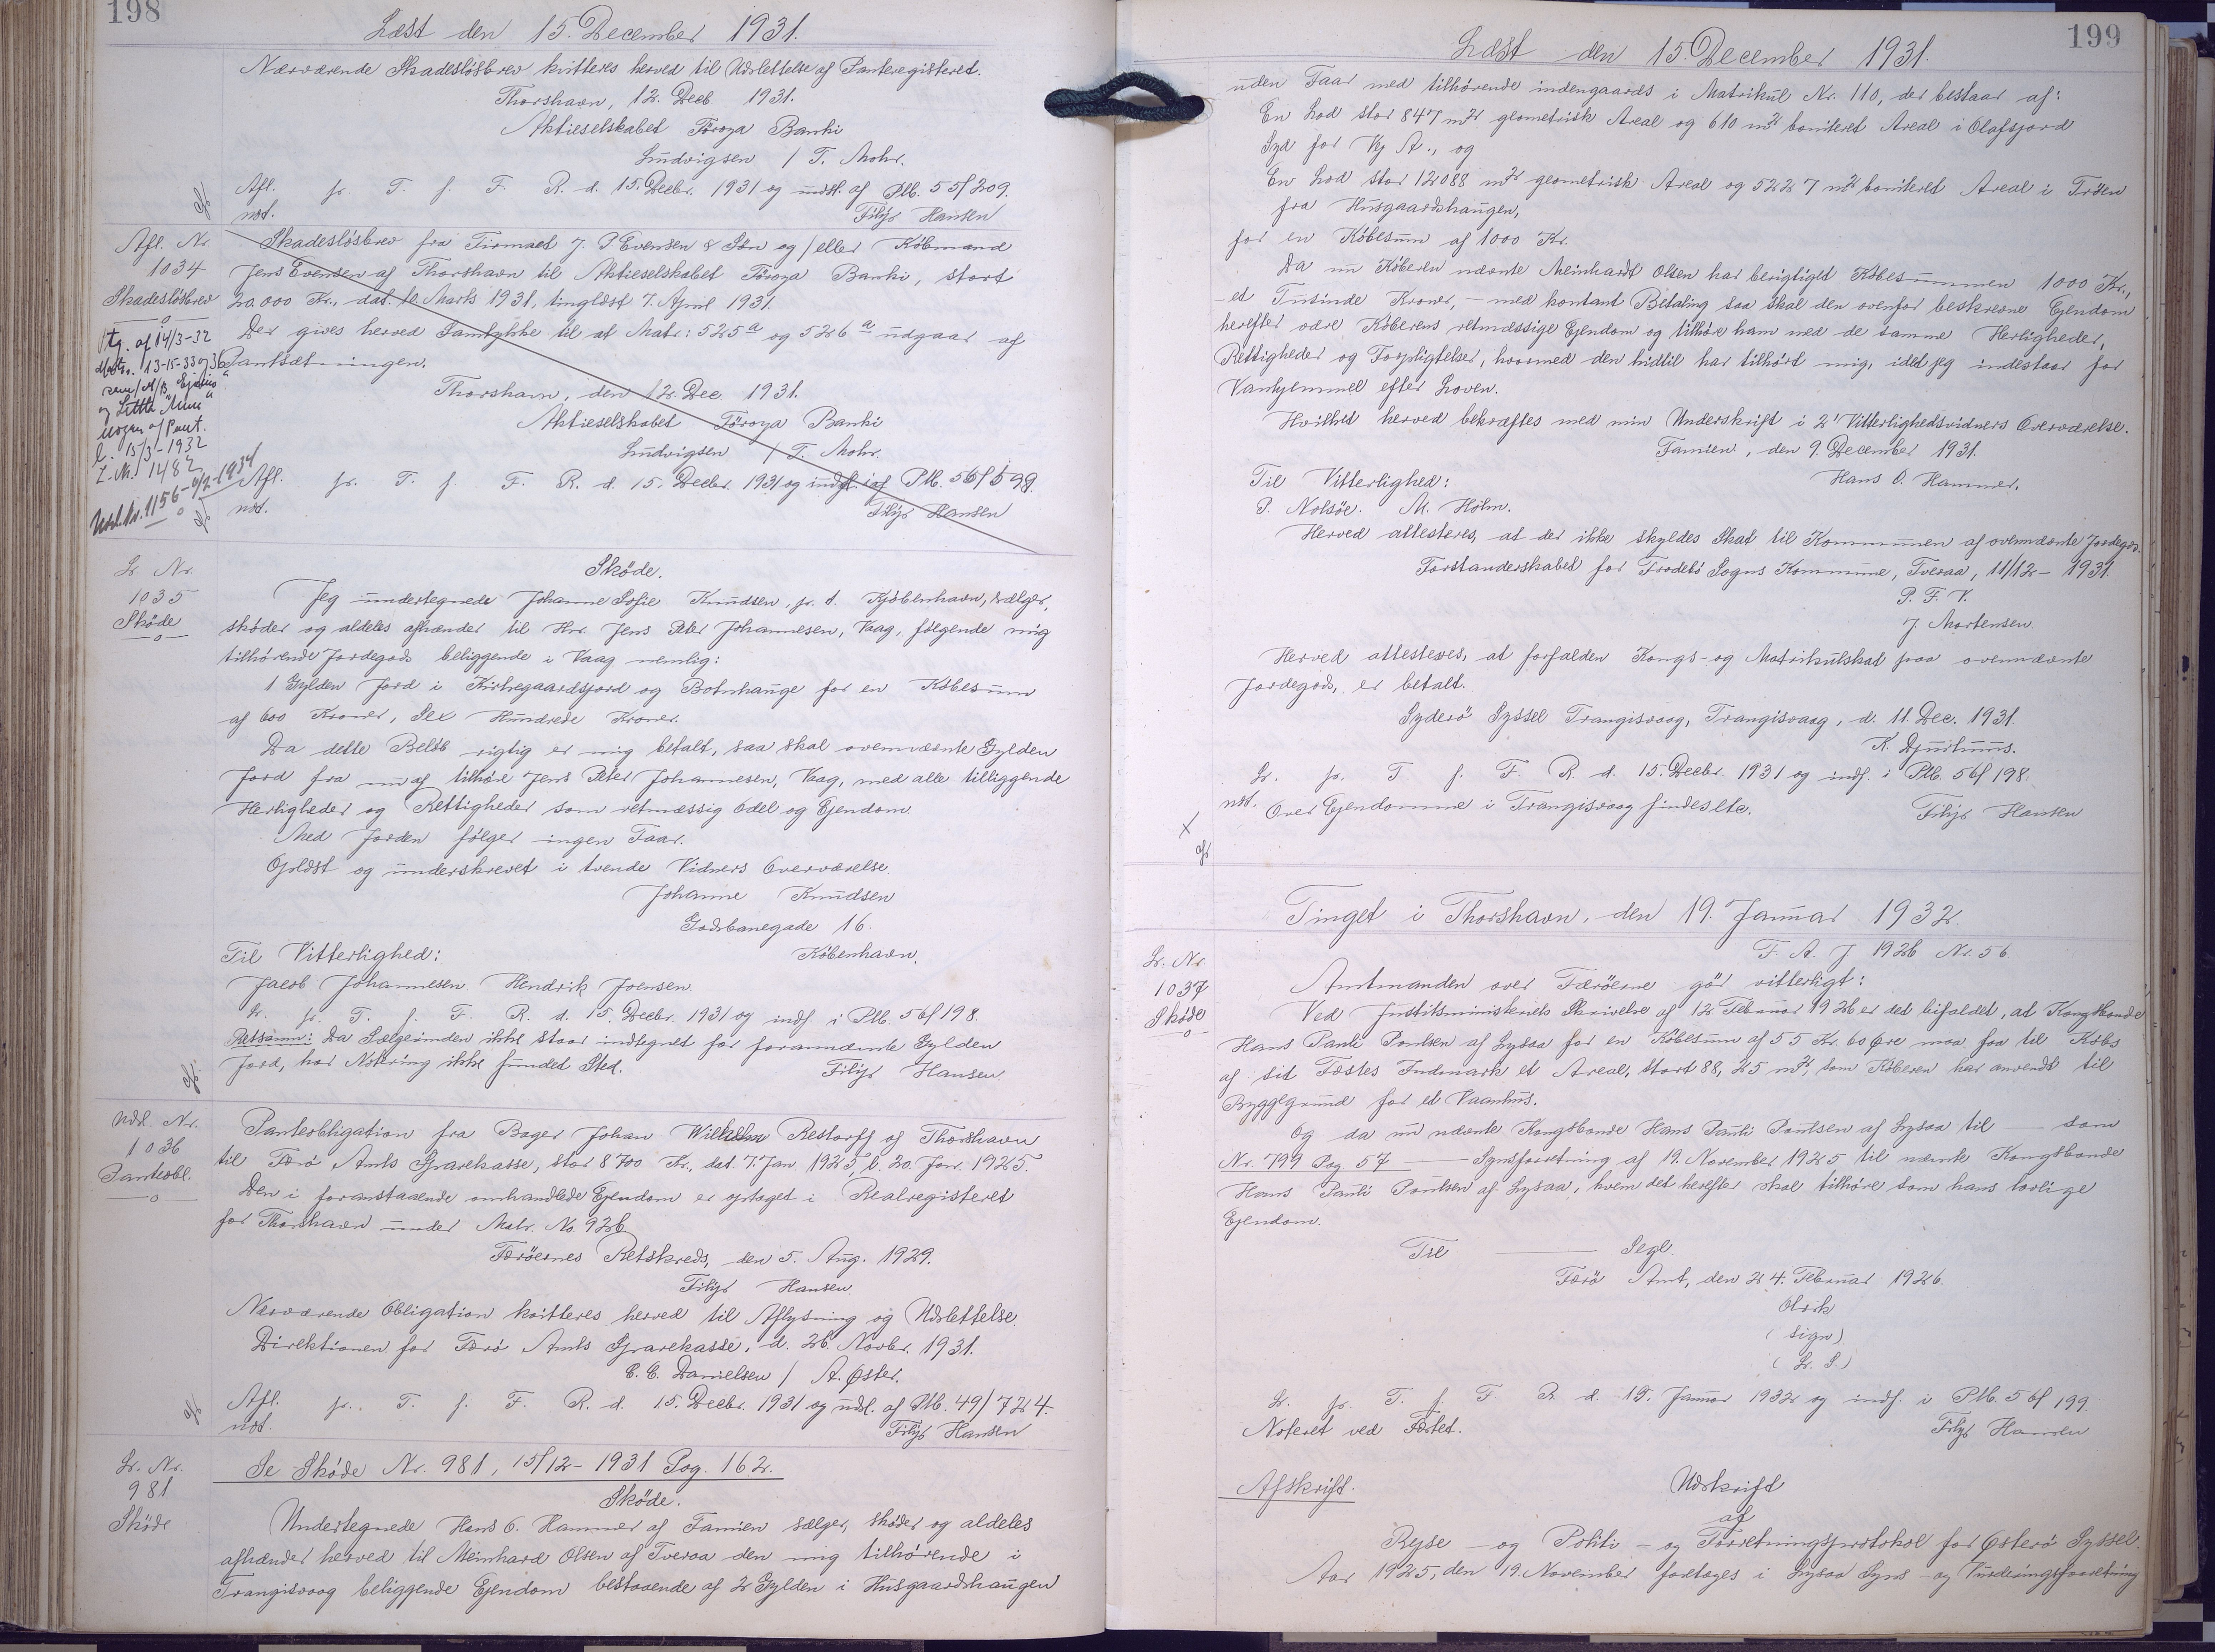 198
Læst den 15. December 1931.
Nærværende Skadesløsbrev kvitteres herved til Udslettelse af Panteregisteret.
Thorshavn, 12. Decb 1931.
Aktieselskabet Föroya Banki
Ludvigsen / T. Mohr.
Afl. pr. T. f. F. R. d. 15. Decbr. 1931 og udsl. af Ptb. 55/209.
not. Filip Hansen
Afl. Nr.
1034
Skadesløsbrev
Skadesløsbrev fra Firmaet J. P Evensen & Søn og/eller Købmand
Jens Evensen af Thorshavn til Aktieselskabet Föroya Banki, stort
20.000 Kr., dat. 10. Marts 1931, tinglæst 7. April 1931.
Der gives herved Samtykke til at Matr: 525a og 526a udgaar af
Pantsætningen.
Ptg. af 14/3-32
Matr. 13-15-33 og 36
og Little "
af Pant.
l. 15/3-1932
L.N. 1482
Udsl.Nr. 1156- -1934
Thorshavn, den 12. Dec. 1931.
Aktieselskabet Föroya Banki
Ludvigsen / T. Mohr.
Afl. pr. T. f. F. R. d. 15. Decbr. 1931 og indf. i af Ptb. 56/599.
not. Filip Hansen
Lr. Nr.
1035
Skøde
Skøde.
Jeg undertegnede Johanne Sofie Knudsen, p. t. Kjøbenhavn, sælger,
skøder og aldeles afhænder til Hr. Jens Peter Johannesen, Vaag, følgende mig
tilhørende Jordegods beliggende i Vaag nemlig:
1 Gylden Jord i Kirkegaardsjord og Botnhauge for en Købesum
af 600 Kroner, Sex Hundrede Kroner.
Da dette Beløb rigtig er mig betalt, saa skal ovennævnte Gylden
Jord fra nu af tilhøre Jens Peter Johannesen, Vaag, med alle tilliggende
Herligheder og Rettigheder som retmæssig Odel og Ejendom.
Med Jorden følger ingen Faar.
Oplæst og underskrevet i tvende Vidners Overværelse.
Johanne Knudsen
Godsbanegade 16.
Til Vitterlighed: København.
Jacob Johannesen. Hendrik Joensen.
Lr. pr. T. f. F. R. d. 15. Decbr. 1931 og indf. i Ptb. 56/198.
Retsanm: Da Sælgerinden ikke staar indtegnet for forannævnte Gylden
Jord, har Notering ikke fundet Sted. Filip Hansen
Udsl. Nr.
1036
Panteobl.
Panteobligation fra Bager Johan Wilhelm Restorff af Thorshavn
til Færø Amts Sparekasse, stor 8700 Kr., dat. 7. Jan. 1925, l. 20. Jan. 1925.
Den i foranstaaende omhandlede Ejendom er optaget i Realregisteret
for Thorshavn under Matr. No. 926
Færöernes Retskreds, den 5. Aug. 1929.
Filip Hansen.
Nærværende Obligation kvitteres herved til Aflysning og Udslettelse.
Direktionen for Færø Amts Sparekasse, d. 26. Novbr. 1931.
C. C. Danielsen / A. Øster.
Afl. pr. T. f. F. R. d. 15. Decbr. 1931 og udsl. af Ptb. 49/724.
not. Filip Hansen
Lr. Nr.
981
Skøde
Se Skøde Nr. 981, 15/12-1931 Pag. 162.
Skøde.
Undertegnede Hans O. Hammer af Famien sælger, skøder og aldeles
afhænder herved til Meinhard Olsen af Tveraa den mig tilhørende i
Trangisvaag beliggende Ejendom bestaaende af 2 Gylden i Husgaardshaugen
199
Læst den 15. December 1931.
uden Faar med tilhørende indengaards i Matrikul Nr. 110, der bestaar af:
En Lod stor 847 m² geometrisk Areal og 610 m² boniteret Areal i Olafsjord
Syd for Vej A., og
En Lod stor 12088 m² geometrisk Areal og 5227 m² boniteret Areal i Tröen
fra Husgaardshaugen,
for en Købesum af 1000 Kr.
Da nu Køberen nævnte Meinhardt Olsen har berigtiget Købesummen 1000 Kr.,
- et Tusinde Kroner, - med kontant Betaling saa skal den ovenfor beskrevne Ejendom
herefter være Køberens retmæssige Ejendom og tilhøre ham med de samme Herligheder,
Rettigheder og Forpligtelser, hvormed den hidtil har tilhørt mig, idet jeg indestaar for
Vanhjemmel efter Loven.
Hvilket herved bekræftes med min Underskrift i 2' Vitterlighedsvidners Overværelse.
Famien, den 9. December 1931.
Til Vitterlighed: Hans O. Hammer.
P. Nolsöe. M. Holm.
Herved attesteres, at der ikke skyldes Skat til Kommunen af ovennævnte Jordegds.
Forstanderskabet for Frodebö Sogns Kommune, Tveraa, 11/12 - 1931.
P. F. V.
J. Mortensen.
Herved attesteres, at forfalden Kongs- og Matrikulskat paa ovennævnte
Jordegods, er betalt.
Syderö Syssel Trangisvaag, Trangisvaag, d. 11. Dec. 1931.
K. Djurhuus.
Lr. pr. T. f. F. R. d. 15. Decbr. 1931 og indf. i Ptb. 56/198.
not. Over Ejendomme i Trangisvaag findes etc. Filip Hansen
Tinget i Thorshavn, den 19. Januar 1932.
Lr. Nr.
1037
Skøde
F. A. J 1926 Nr. 56
Amtmanden over Færöerne gör vitterligt:
Ved Justitsministeriets Skrivelse af 12. Februar 1926 er det bifaldet, at Kongsbonde
Hans Pauli Poulsen af Lysaa for en Købesum af 55 Kr. 60 Øre maa faa til Købs
af sit Fæstes Indmark et Areal, stort 88,25 m², som Køberen har anvendt til
Byggegrund for et Vaanhus.
Og da nu nævnte Kongsbonde Hans Pauli Poulsen af Lysaa til — som
Nr. 799 Pag 57 — Synsforretning af 19. November 1925 til nævnte Kongsbonde
Hans Pauli Poulsen af Lysaa, hvem det herefter skal tilhøre som hans lovlige
Ejendom.
Til — Segl.
Færö Amt, den 24. Februar 1926.
Olrik
(sign)
(L. S.)
Lr. pr. T. f. F. R. d. 19. Januar 1932 og indf. i Ptb. 56/199.
Noteret ved Fæstet. Filip Hansen
Afskrift. Udskrift
af
Rejse - og Politi - og Forretningsprotokol for Østerø Syssel.
Aar 1925, den 19. November foretoges i Lysaa Syns - og Vurderingsforretning